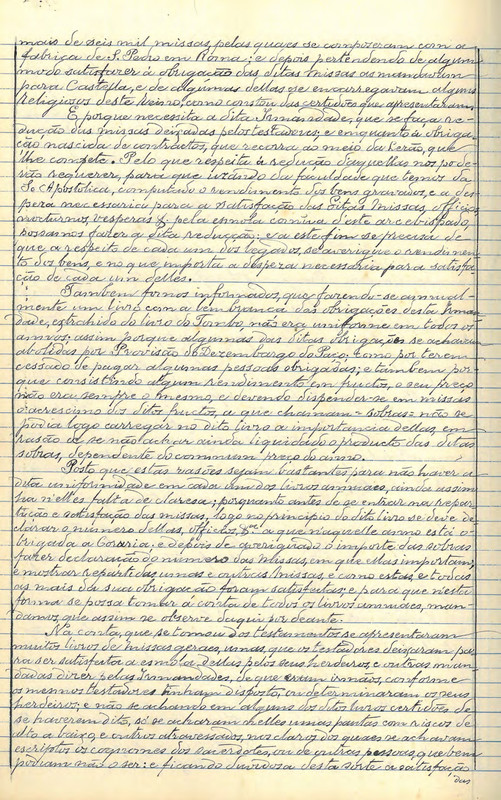 mais de seis mil missas, pelas quaes se composeram com a
fabrica de S. Pedro em Roma; e depois pertendendo de algum
modo satisfazer á obrigação das ditas missas as mandaram
para Castella, e de algumas dellas se encarregaram alguns
Religiosos deste Reino, como constou das certidões que apresentaram.
E porque necessita a dita Irmandade, que se faça re-
ducção das missas deixadas pelos testadores, e emquanto á obriga-
ção nascida de contractos, que recorra ao meio da Lezão, que
lhe compete. Pelo que respeita á redução daquellas nos pode-
rão requerer, para que uzando da faculdade que temos da
Sé Apostolica, computado o rendimento dos bens gravados, e a des-
peza necessaria para a satisfação das ditas missas, officios,
nocturnos, vesperas &, pela esmola comua d'este arcebispado,
possamos fazer a dita reducção: e a este fim se precisa de
que a respeito de cada um dos legados, se averigue o rendimen-
to dos bens, e no que importa a despeza necessaria para satisfa-
ção de cada um delles.
Tambem fomos informados, que fazendo-se annual-
mente um livro com a lembrança das obrigações desta Irman-
dade, extrahido do livro do Tombo, não era uniforme em todos os
annos; assim porque algumas das ditas obrigações se acharam
abolidas por Provisão do Dezembargo do Paço, como por terem
cessado de pagar algumas pessoas obrigadas; e tambem por-
que consistindo algum rendimento em fructos, o seu preço
não era sempre o mesmo, e devendo dispender-se em missas
o acrescimo dos ditos fructos, a que chamam = sobras = não se
podia logo carregar no dito livro a importancia dellas, em
rasão de se não achar ainda liquidado o producto das ditas
sobras, dependente do commum preço do anno.
Posto que estas rasões sejam bastantes para não haver a
dita uniformidade em cada um dos livros annuaes, ainda assim
ha n'elles falta de claresa; porquanto antes de se entrar na repar-
tição e satisfação das missas, logo no principio do dito livro se deve de-
clarar o numero dellas, officios, &. a que n'aquelle anno está o-
brigada a Confraria, e depois de averiguado o importe das sobras
fazer declaração do numero das missas, em que ellas importam,
e mostrar repartidas umas e outras missas, e como estas, e todas
as mais da sua obrigação foram satisfeitas; e para que n'esta
forma se possa tomar a conta de todos os livros annuaes, man-
damos, que assim se observe daqui por deante.
Na conta, que se tomou dos testamentos se apresentaram
muitos livros de missas geraes, umas, que os testadores deixaram pa-
ra ser satisfeita a esmola dellas pelos seus herdeiros, e outras man-
dadas dizer pelas Irmandades, de que eram irmãos, conforme
os mesmos testadores tinham disposto, ou determinaram os seus
herdeiros; e não se achando em alguns dos ditos livros certidões de
se haverem dito, só se acharam n'elles umas pautas com riscos de
alto a baixo, e outros atravessados, nos claros dos quaes se achavam
escriptos os cognomes dos sacerdotes, ou de outras pessoas, que bem
podiam não o ser: e ficando duvidosa desta sorte a satisfação
das